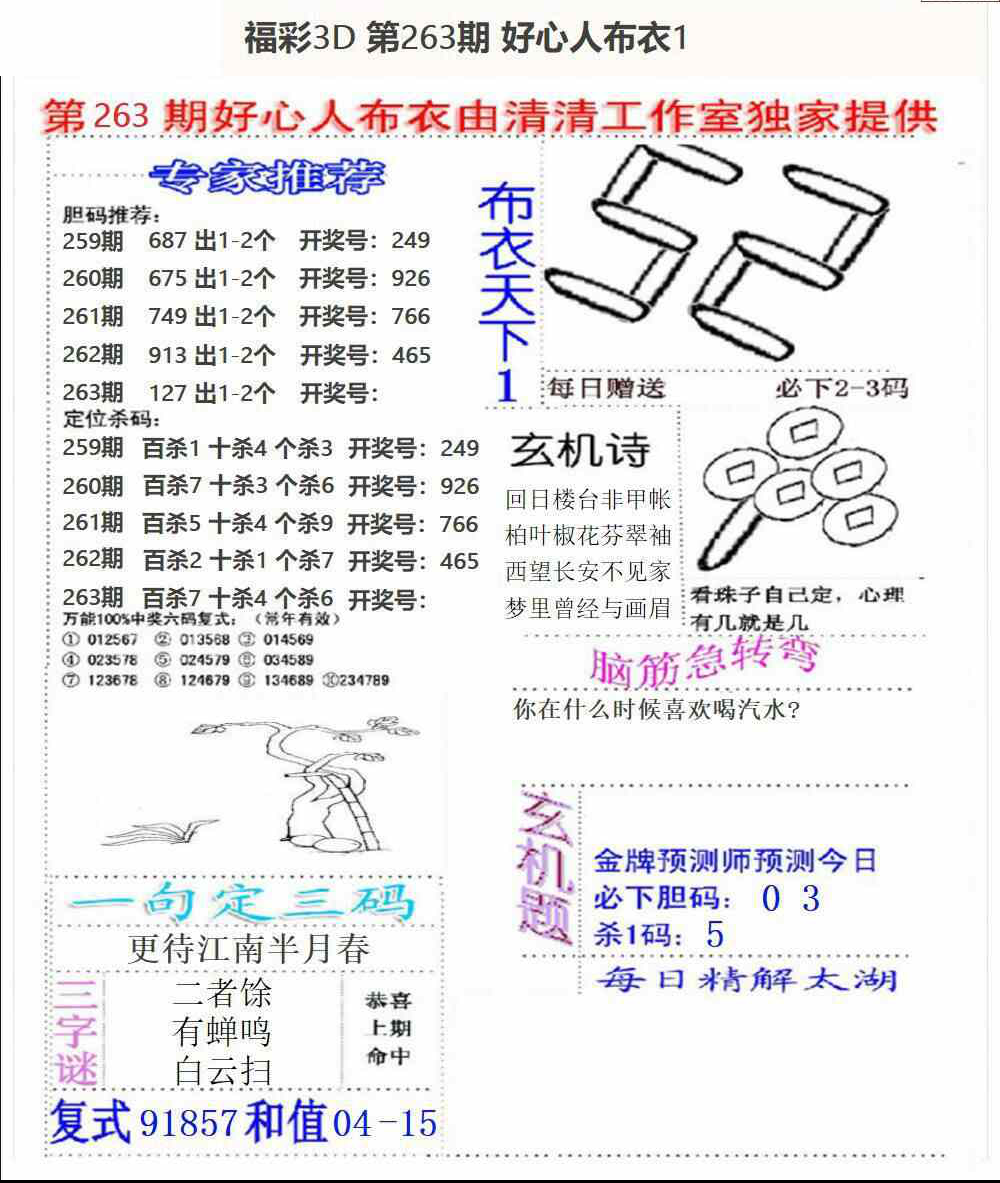 福彩3D 第263期 好心人布衣1
第263 期好心人布衣由清清工作室独家提供
专家推荐
胆码推荐：
259期 687 出1-2个 开奖号：249
260期 675 出1-2个 开奖号：926
261期 749 出1-2个 开奖号：766
262期 913 出1-2个 开奖号：465
263期 127 出1-2个 开奖号：
定位杀码：
259期 百杀1 十杀4 个杀3 开奖号：249
260期 百杀7 十杀3 个杀6 开奖号：926
261期 百杀5 十杀4 个杀9 开奖号：766
262期 百杀2 十杀1 个杀7 开奖号：465
263期 百杀7 十杀4 个杀6 开奖号：
万能100%中奖六码复式：（常年有效）
① 012567 ② 013568 ③ 014569
④ 023578 ⑤ 024579 ⑥ 034589
⑦ 123678 ⑧ 124679 ⑨ 134689 ⑩234789
一句定三码
更待江南半月春
三字谜
二者馀
有蝉鸣
白云扫
恭喜
上期
命中
复式 91857 和值 04-15
布衣天下1
52
每日赠送 必下2-3码
玄机诗
回日楼台非甲帐
柏叶椒花芬翠袖
西望长安不见家
梦里曾经与画眉
看珠子自己定，心理
有几就是几
脑筋急转弯
你在什么时候喜欢喝汽水?
玄机题
金牌预测师预测今日
必下胆码： 0 3
杀1码： 5
每日精解太湖